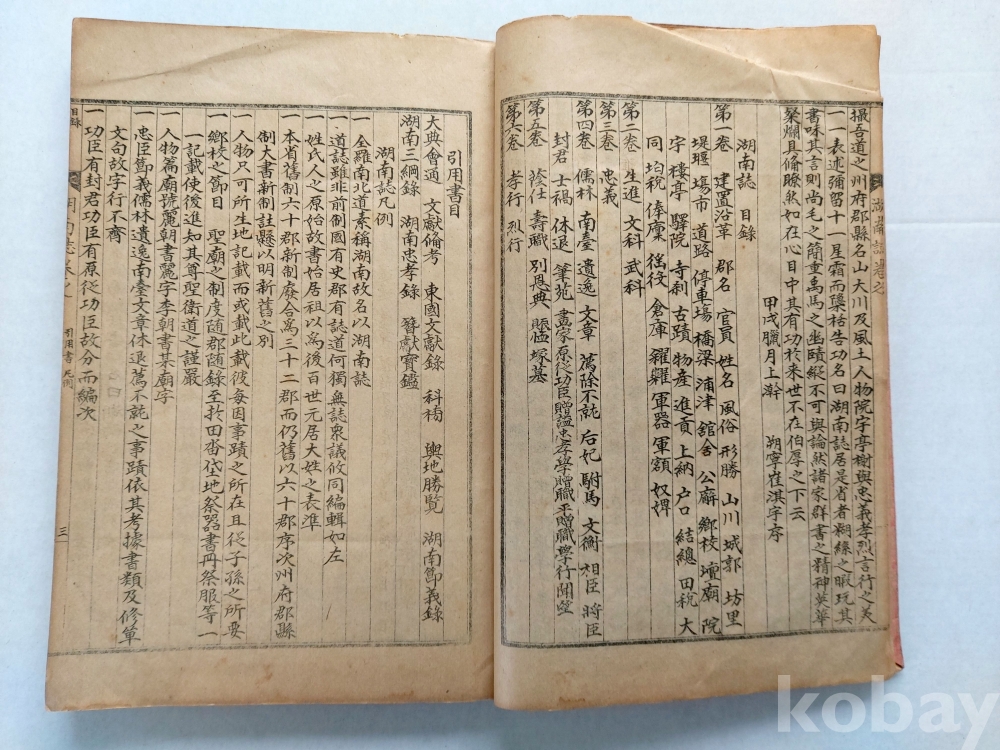 撮吾道之州府郡縣名山大川及風土人物院宇亭榭與忠義孝烈言行之美
一一表述彌留十一星霜而槧梏告功名曰湖南誌居是省者糊緣之暇玩其
書味其言則尚毛之簡重禹馬之幽賾縱不可與論然諸家群書之精神英華
粲爛具備瞭然如在心目中其有功於來世不在伯厚之下云
甲戌臘月上澣 湖寧崔淇宇序
湖南誌 目錄
第一卷 建置沿革 郡名 官員 姓名 風俗 形勝 山川 城郭 坊里
堤堰 塲市 道路 停車塲 橋梁 浦津 舘舍 公廨 鄉校 壇廟 院
宇 樓亭 驛院 寺刹 古蹟 物産 進貢 上納 户口 結總 田稅 大
同 均稅 俸廩 徭役 倉庫 糴糶 軍器 軍額 奴婢
第二卷 生進 文科 武科
第三卷 忠義
第四卷 儒林 南臺 遺逸 文章 薦除不就 后妃 駙馬 文衡 相臣 將臣
封君 士禍 休退 筆苑 畫家 原從功臣 贈謚 忠孝學贈職 平贈職 學行
第五卷 蔭仕 壽職 別恩典 賑恤 塚墓
第六卷 孝行 烈行
引用書目
大典會通 文獻備考 東國文獻錄 科榜 輿地勝覽 湖南節義錄
湖南三綱錄 湖南忠孝錄 簪獻寶鑑
湖南誌凡例
一 全羅南北道素稱湖南故名以湖南誌
一 道誌雖非前制國有史郡有誌道何獨無誌衆議攸同編輯如左
一 姓氏人之原始故書始居祖以爲後百世元居大姓之表準
一 本省舊制六十郡新制廢合爲三十二郡而仍舊以六十郡序次州府郡縣
制大書新制註懸以明新舊之別
一 人物只可所生地記載而或載此載彼每因事蹟之所在且從子孫之所要
一 鄉校之節目 聖廟之制度隨郡隨錄至於田畓垈地祭器書冊祭服等一
一記載使後進知其尊聖衛道之謹嚴
一 人物篇廟號麗朝書麗字李朝書某廟字
一 忠臣節義儒林遺逸南臺文章休退薦不就之事蹟依其考據書類及修單
文句故字行不齊
一 功臣有封君功臣有原從功臣故分而編次
目錄
引用書 凡例
三
kobay